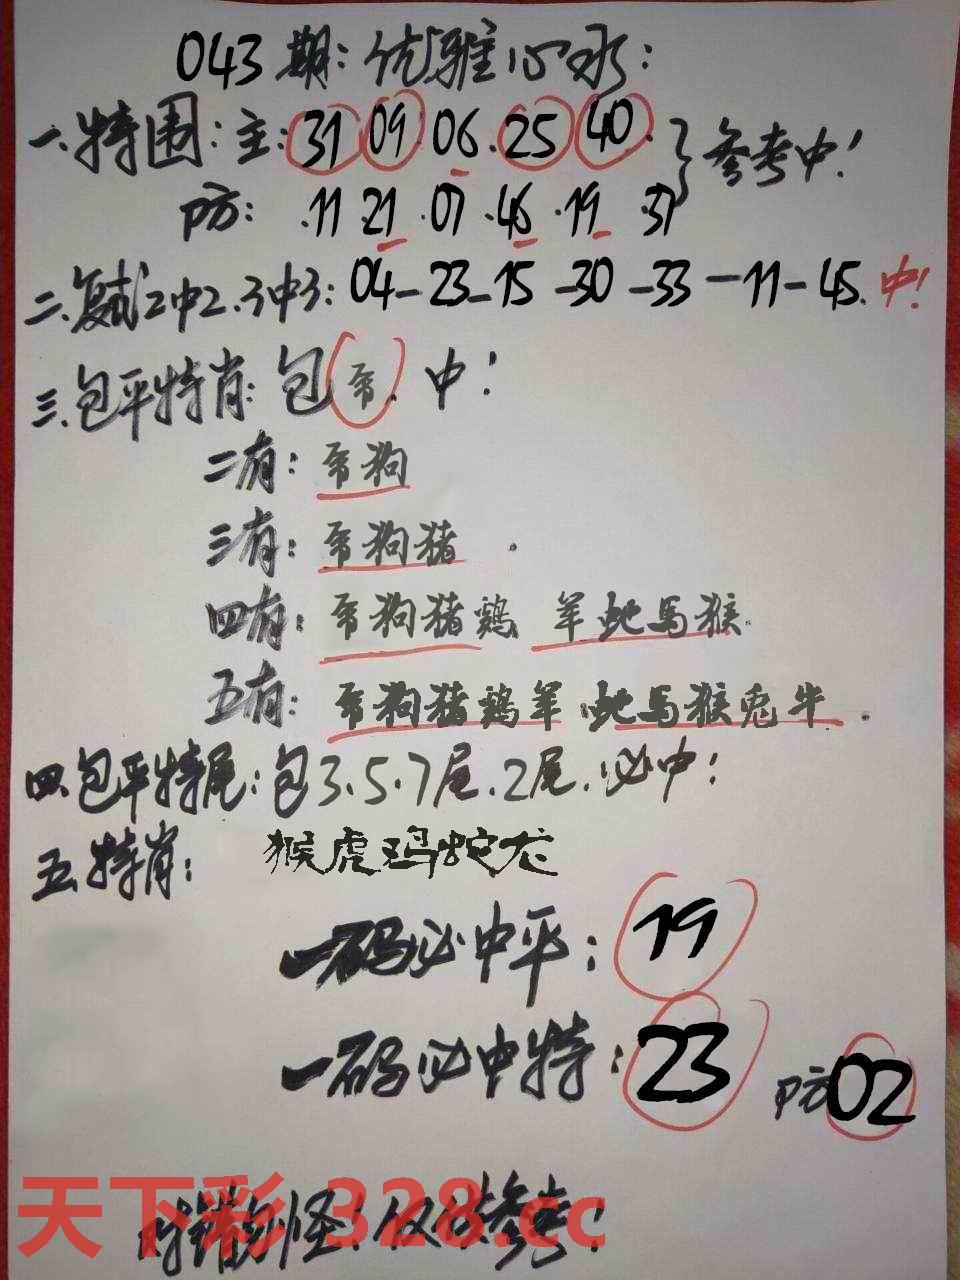 043期:优雅心水:
一.特围:主:31 09 06.25 40.}参考中!
防:.11 21.07.46.19.37
二.复式2中2.3中3:04-23-15-30-33-11-45.中!
三.包平特肖:包 . 中!
二有: 狗
三有: 狗猪.
四有: 狗猪鸡 羊蛇马猴.
五有: 狗猪鸡羊.蛇马猴兔牛.
四.包平特尾:包3.5.7尾.2尾.必中!
五.特肖:猴虎鸡蛇龙
一码必中平:19
一码必中特:23 防02
对错勿怪!仅供参考!
天下彩 328.cc